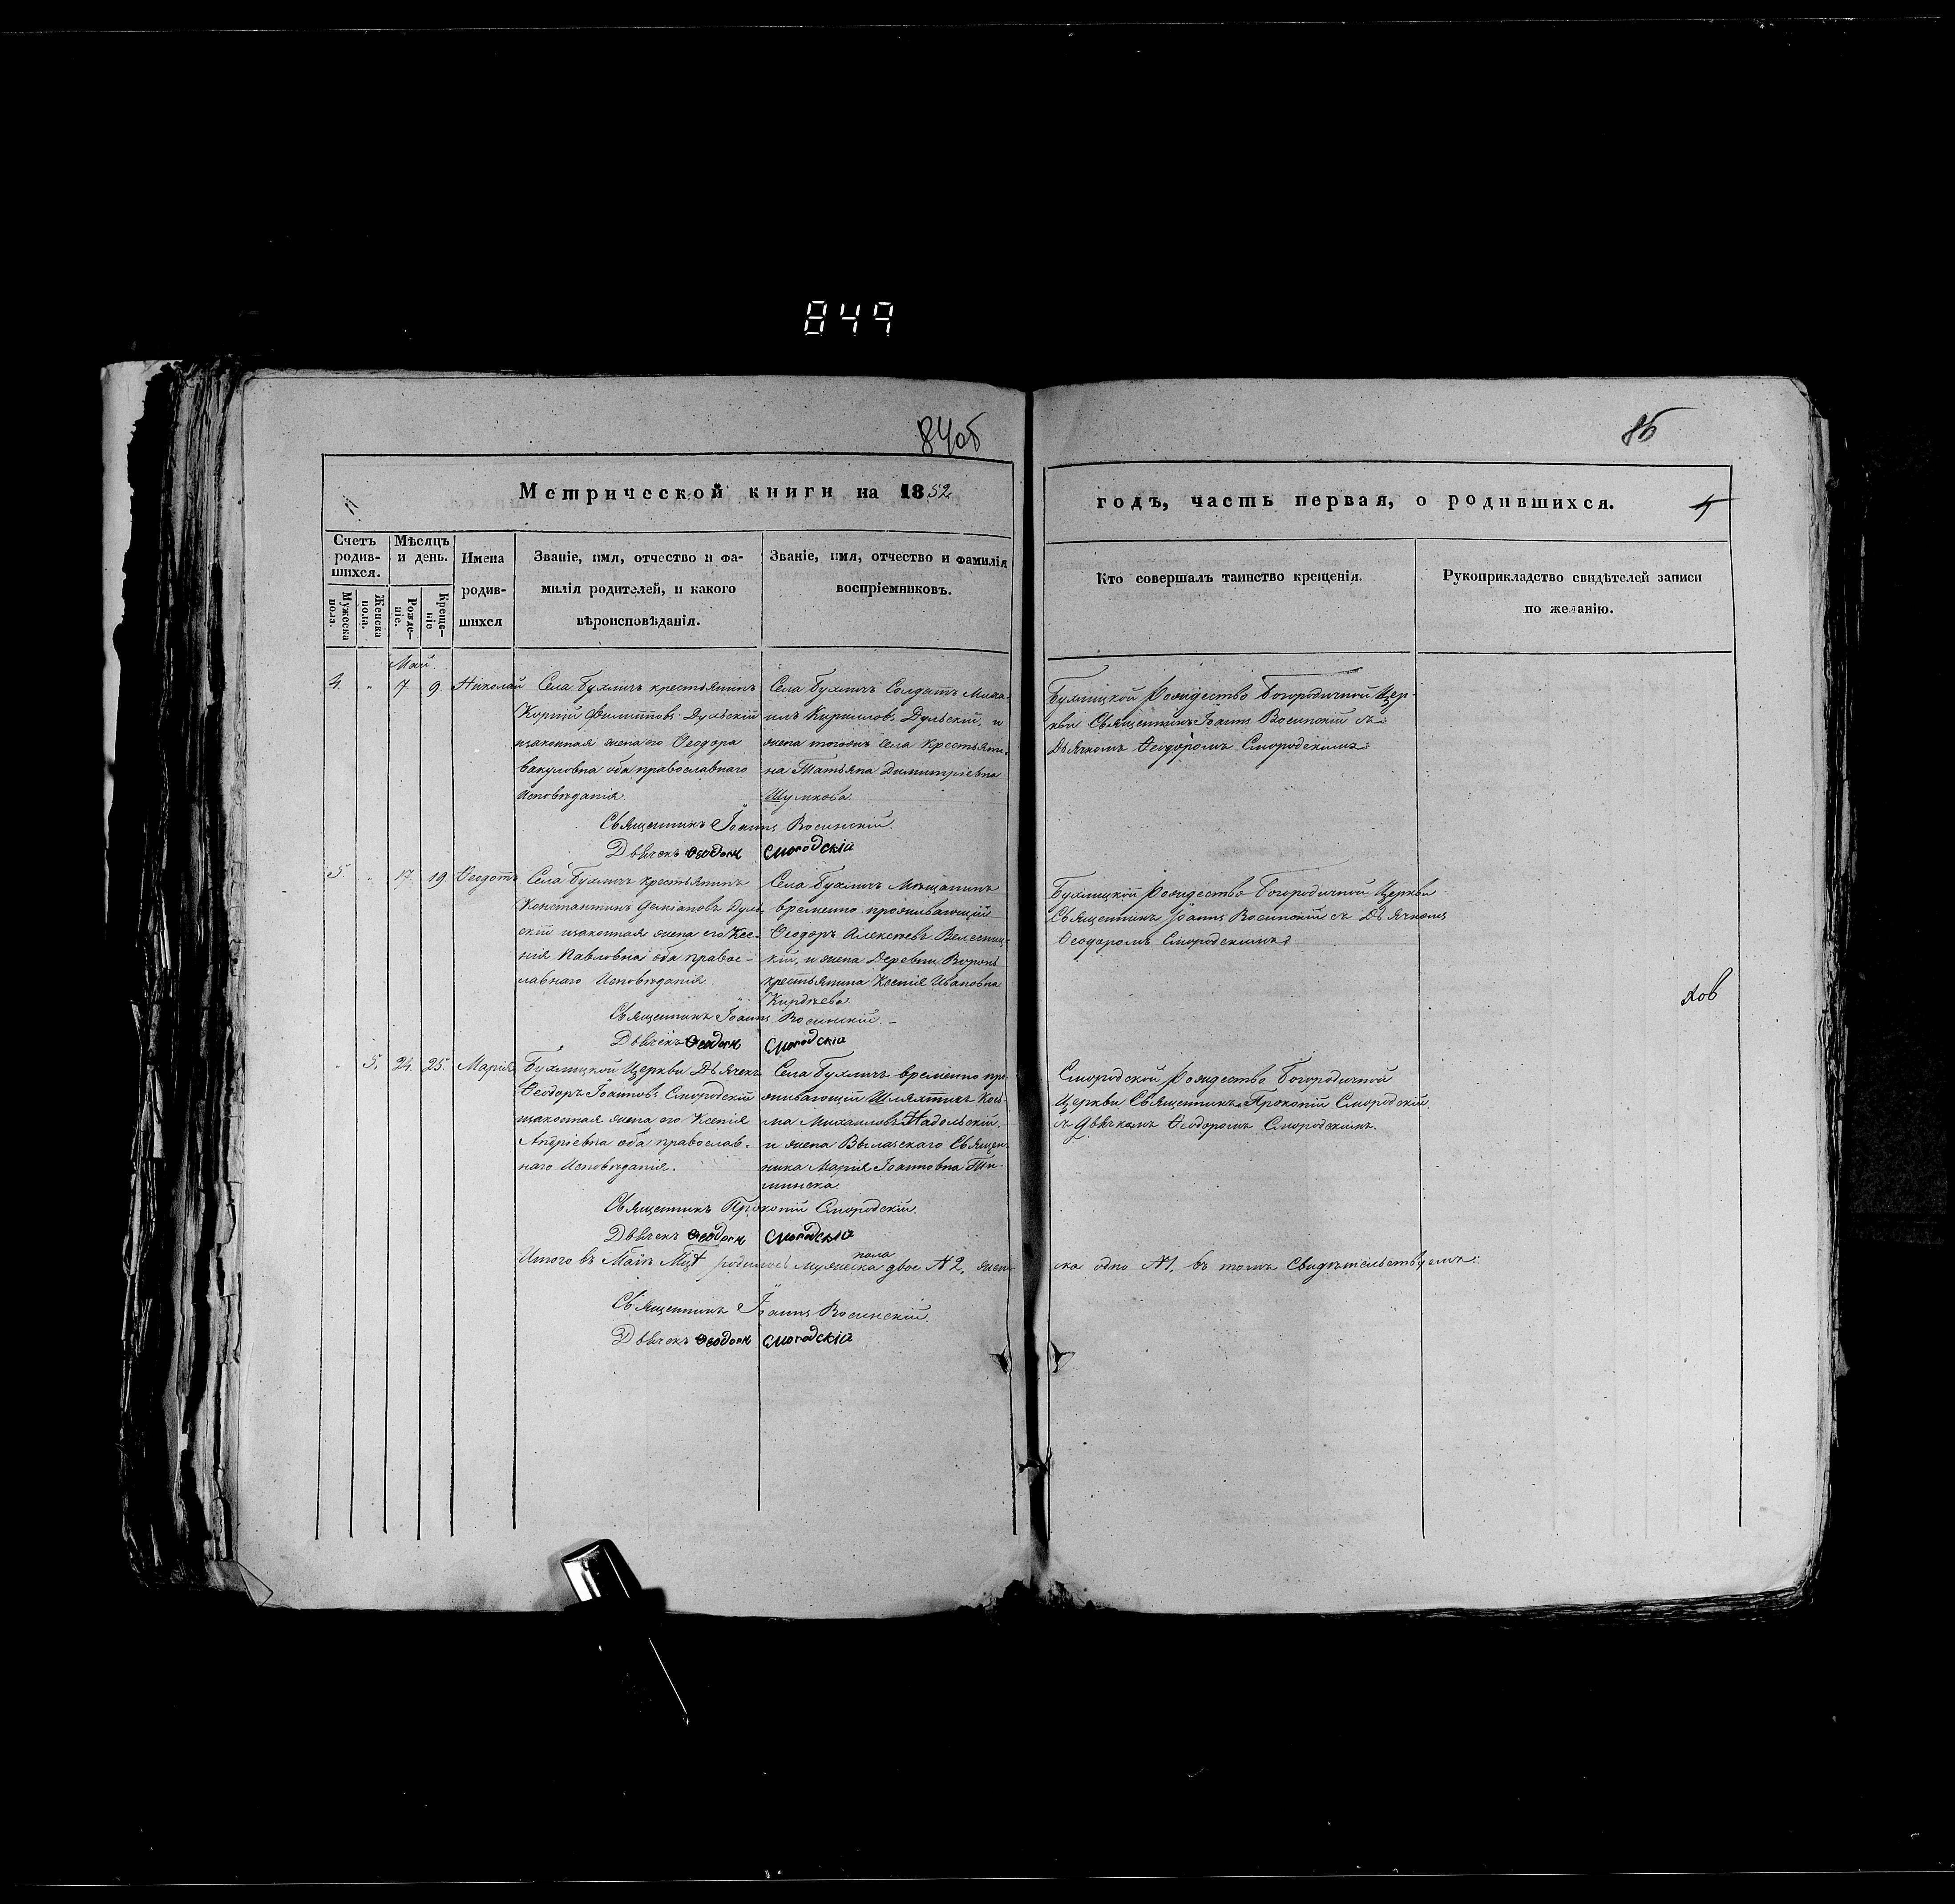 849
84об
85
Метрической книги на 1852
годъ, часть первая, о родившихся.
Счетъ родив-шихся.
Мужеска пола.
Женска пола.
Мѣсяцъ и день.
Рожде-ніе.
Креще-ніе
Имена родив-шихся
Званіе, имя, отчество и фа-
милія родителей, и какого
вѣроисповѣданія.
Званіе, имя, отчество и фамилія
воспріемниковъ.
Кто совершалъ таинство крещенія.
Рукоприкладство свидѣтелей записи
по желанію.
Май.
4. " 7 9. Николай
Села Бухличъ крестьянинъ
Корній Филиповъ Дульскій
изаконная жена его Ѳеодора
Вакуловна оба православнаго
Исповѣданія.
Села Бухличъ Солдатъ Миха-
илъ Кириловъ Дульскій, и
жена тогожъ села Крестьяни-
на Татьяна Димитріевна
Шумкова.
Бухлицкой Рождество Богородичной Цер-
кви Священникъ Іоаннъ Восинскій съ
Дьячкомъ Ѳеодоромъ Смородскимъ
Священникъ Іоаннъ Восинскій.
Дьячекъ Ѳеодоръ Смородскій
5. " 17. 19 Ѳеодотъ
Села Бухличъ Крестьянинъ
Константинъ Деміановъ Дуль-
скій изаконная жена его Ксе-
нія Павловна оба правос-
лавнаго Исповѣданія.
Села Бухличъ Мѣщанинъ
временно проживающій
Ѳеодоръ Алексѣевъ Велечиц-
кій, и жена Деревни Воронь
крестьянина Ксенія Ивановна
Кирдѣева.
Бухлицкой Рождество Богородичной Церкви
Священникъ Іоаннъ Восинскій съ Дьячкомъ
Ѳеодоромъ Смородскимъ
Священникъ Іоаннъ Восинскій.
Дьячекъ Ѳеодоръ Смородскій
хов
" 5. 24. 25. Марія
Бухлицкой Церкви Дьячекъ
Ѳеодоръ Іоанновъ Смородскій
изаконная жена его Ксенія
Андріевна оба православ-
наго Исповѣданія.
Села Бухличъ временно про-
живающій Шляхтичъ Козь-
ма Михаиловъ Надольскій.
и жена Вылазскаго Священ-
ника Марія Іоанновна Ти-
минска.
Смородской Рождество Богородичной
Церкви Священникъ Прокопій Смородскій.
съ Дьячкомъ Ѳеодоромъ Смородскимъ.
Священникъ Прокопій Смородскій.
Дьячекъ Ѳеодоръ Смородскій
Итого въ Маѣ Мцѣ родилось мужеска пола двое № 2, жен-
ска одно № 1. въ томъ Свидѣтельствуемъ:
Священникъ Іоаннъ Восинскій.
Дьячекъ Ѳеодоръ Смородскій